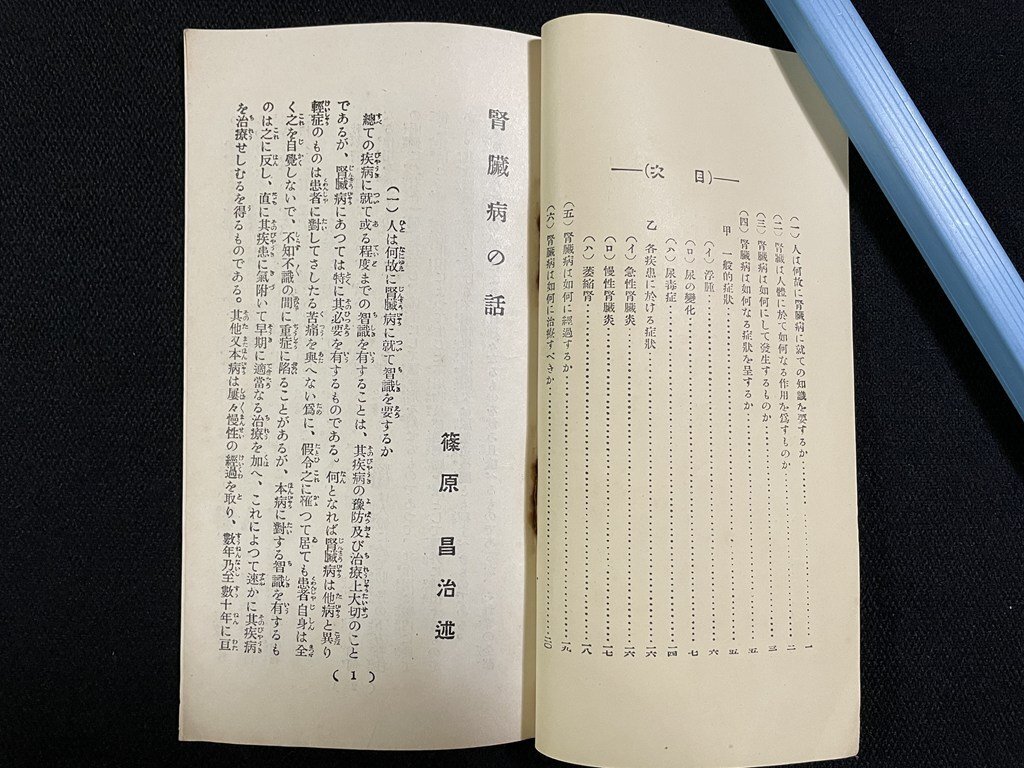 ―(目次)―
(一) 人は何故に腎臓病に就ての知識を要するか………一
(二) 腎臓は人體に於て如何なる作用を爲すものか………二
(三) 腎臓病は如何にして發生するものか………三
(四) 腎臓病は如何なる症狀を呈するか………五
甲 一般的症狀………五
(イ) 浮腫………六
(ロ) 尿の變化………七
(ハ) 尿毒症………一四
乙 各疾患に於ける症狀………一六
(イ) 急性腎臓炎………一六
(ロ) 慢性腎臓炎………一七
(ハ) 萎縮腎………一八
(五) 腎臓病は如何に經過するか………一九
(六) 腎臓病は如何に治療すべきか………二〇
腎臓病の話
篠原昌治述
(一) 人は何故に腎臓病に就て智識を要するか
總ての疾病に就て或る程度までの智識を有することは、其疾病の豫防及び治療上大切のこと
であるが、腎臓病にあつては特に其必要を有するものである。何となれば腎臓病は他病と異り
輕症のものは患者に對してさしたる苦痛を與へない爲に、假令之に罹つて居ても患者自身は全
く之を自覺しないで、不知不識の間に重症に陷ることがあるが、本病に對する智識を有するも
のは之に反し、直に其疾患に氣附いて早期に適當なる治療を加へ、これによつて速かに其疾病
を治療せしむるを得るものである。其他又本病は屢々慢性の經過を取り、數年乃至數十年に亘
(1)